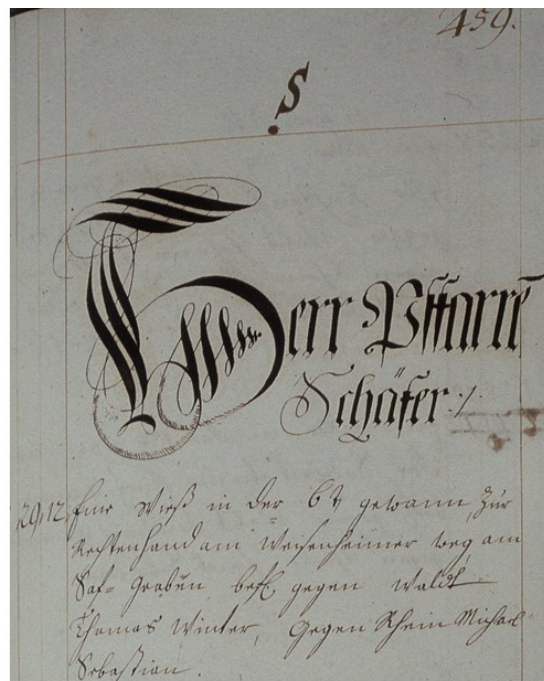 459.
S
Herr Pffarre
Schäfer ./.
29,12 Eine Wieß in der 6t gewann, Zur
Rechtenhand am Weisenheimer weg am
graben gegen Waldt
Thomas Winter, Gegen Rhein Michael
Sebastian.